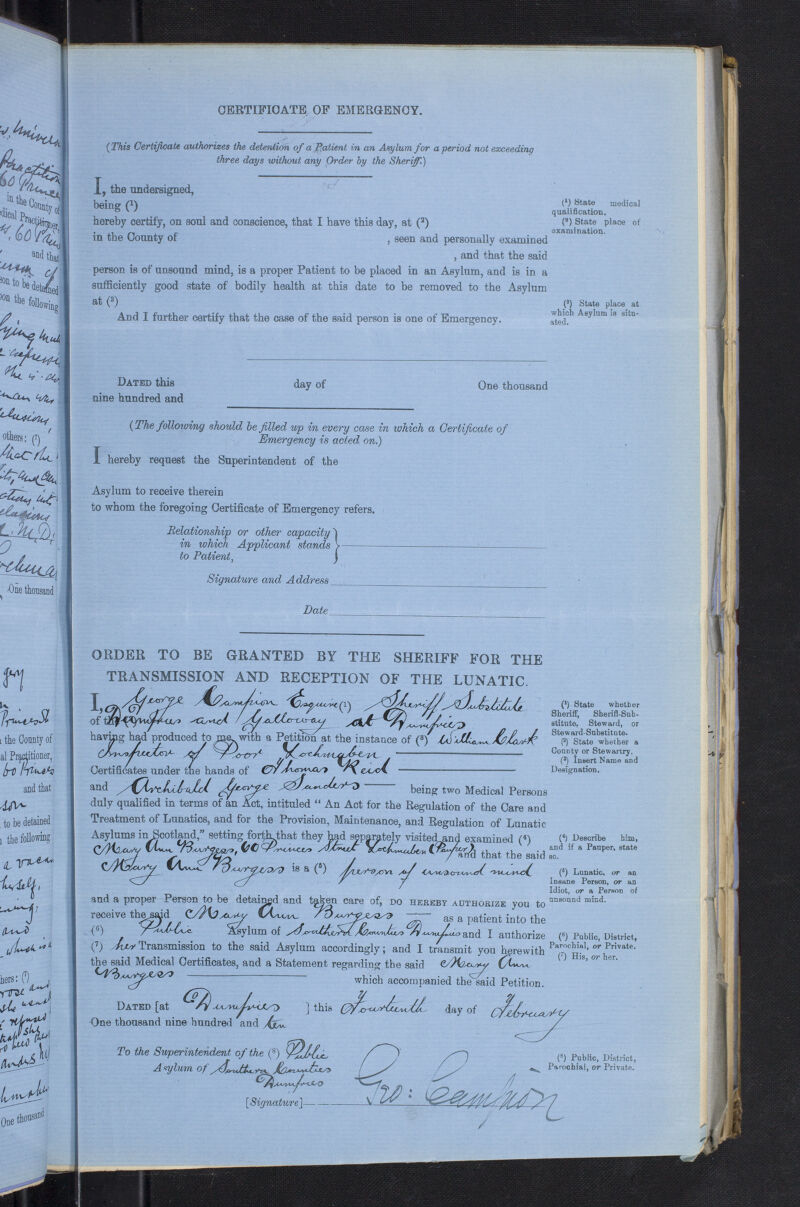 CERTIFICATE OF EMERGENCY.
(This Certificate authorizes the detention of a Patient in an Asylum for a period not exceeding
three days without any Order by the Sheriff.)
I, the undersigned,
being (¹)
hereby certify, on soul and conscience, that I have this day, at (²)
in the County of , seen and personally examined
, and that the said
person is of unsound mind, is a proper Patient to be placed in an Asylum, and is in a
sufficiently good state of bodily health at this date to be removed to the Asylum
at (³)
And I further certify that the case of the said person is one of Emergency.
(¹) State medical
qualification.
(²) State place of
examination.
(³) State place at
which Asylum is situ-
ated.
DATED this day of One thousand
nine hundred and
(The following should be filled up in every case in which a Certificate of
Emergency is acted on.)
I hereby request the Superintendent of the
Asylum to receive therein
to whom the foregoing Certificate of Emergency refers.
Relationship or other capacity
in which Applicant stands
to Patient,
Signature and Address
Date
ORDER TO BE GRANTED BY THE SHERIFF FOR THE
TRANSMISSION AND RECEPTION OF THE LUNATIC.
I, George Campion Esquire (¹) Sheriff Substitute
of Dumfries and Galloway at Dumfries
having had produced to me with a Petition at the instance of (³) William Clark
Inspector of Poor Lochmaben
Certificates under the hands of Thomas Reid
and Archibald George Sanders being two Medical Persons
duly qualified in terms of an Act, intituled "An Act for the Regulation of the Care and
Treatment of Lunatics, and for the Provision, Maintenance, and Regulation of Lunatic
Asylums in Scotland," setting forth that they had separately visited and examined (⁴)
Mary Ann Burgess, 60 Princes Street Lochmaben (Pauper) and that the said
Mary Ann Burgess is a (⁵) person of unsound mind
and a proper Person to be detained and taken care of, DO HEREBY AUTHORIZE you to
receive the said Mary Ann Burgess as a patient into the
(⁶) Public Asylum of Southern Counties Dumfries and I authorize
(⁷) her Transmission to the said Asylum accordingly; and I transmit you herewith
the said Medical Certificates, and a Statement regarding the said Mary Ann
Burgess which accompanied the said Petition.
DATED [at Dumfries ] this Fourteenth day of February
One thousand nine hundred and ten
To the Superintendent of the (⁸) Public
Asylum of Southern Counties
Dumfries
[Signature] Geo: Campion
(¹) State whether
Sheriff, Sheriff-Sub-
stitute, Steward, or
Steward-Substitute.
(²) State whether a
County or Stewartry.
(³) Insert Name and
Designation.
(⁴) Describe him,
and if a Pauper, state
so.
(⁵) Lunatic, or an
Insane Person, or an
Idiot, or a Person of
unsound mind.
(⁶) Public, District,
Parochial, or Private.
(⁷) His, or her.
(⁸) Public, District,
Parochial, or Private.
in the County of
and that
to be detained
the following
others: (⁷)
One thousand
the County of
and that
to be detained
the following
One thousand